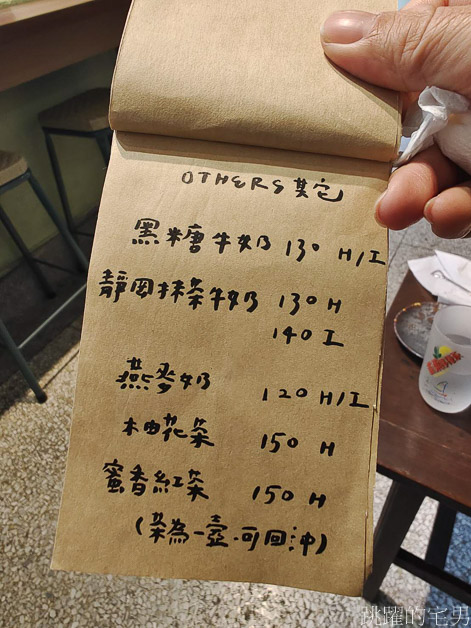 OTHERS 其它
黑糖牛奶 130 H/I
靜岡抹茶牛奶 130 H
140 I
燕麥奶 120 H/I
柚花茶 150 H
蜜香紅茶 150 H
(茶為一壺.可回沖)
跳躍的宅男